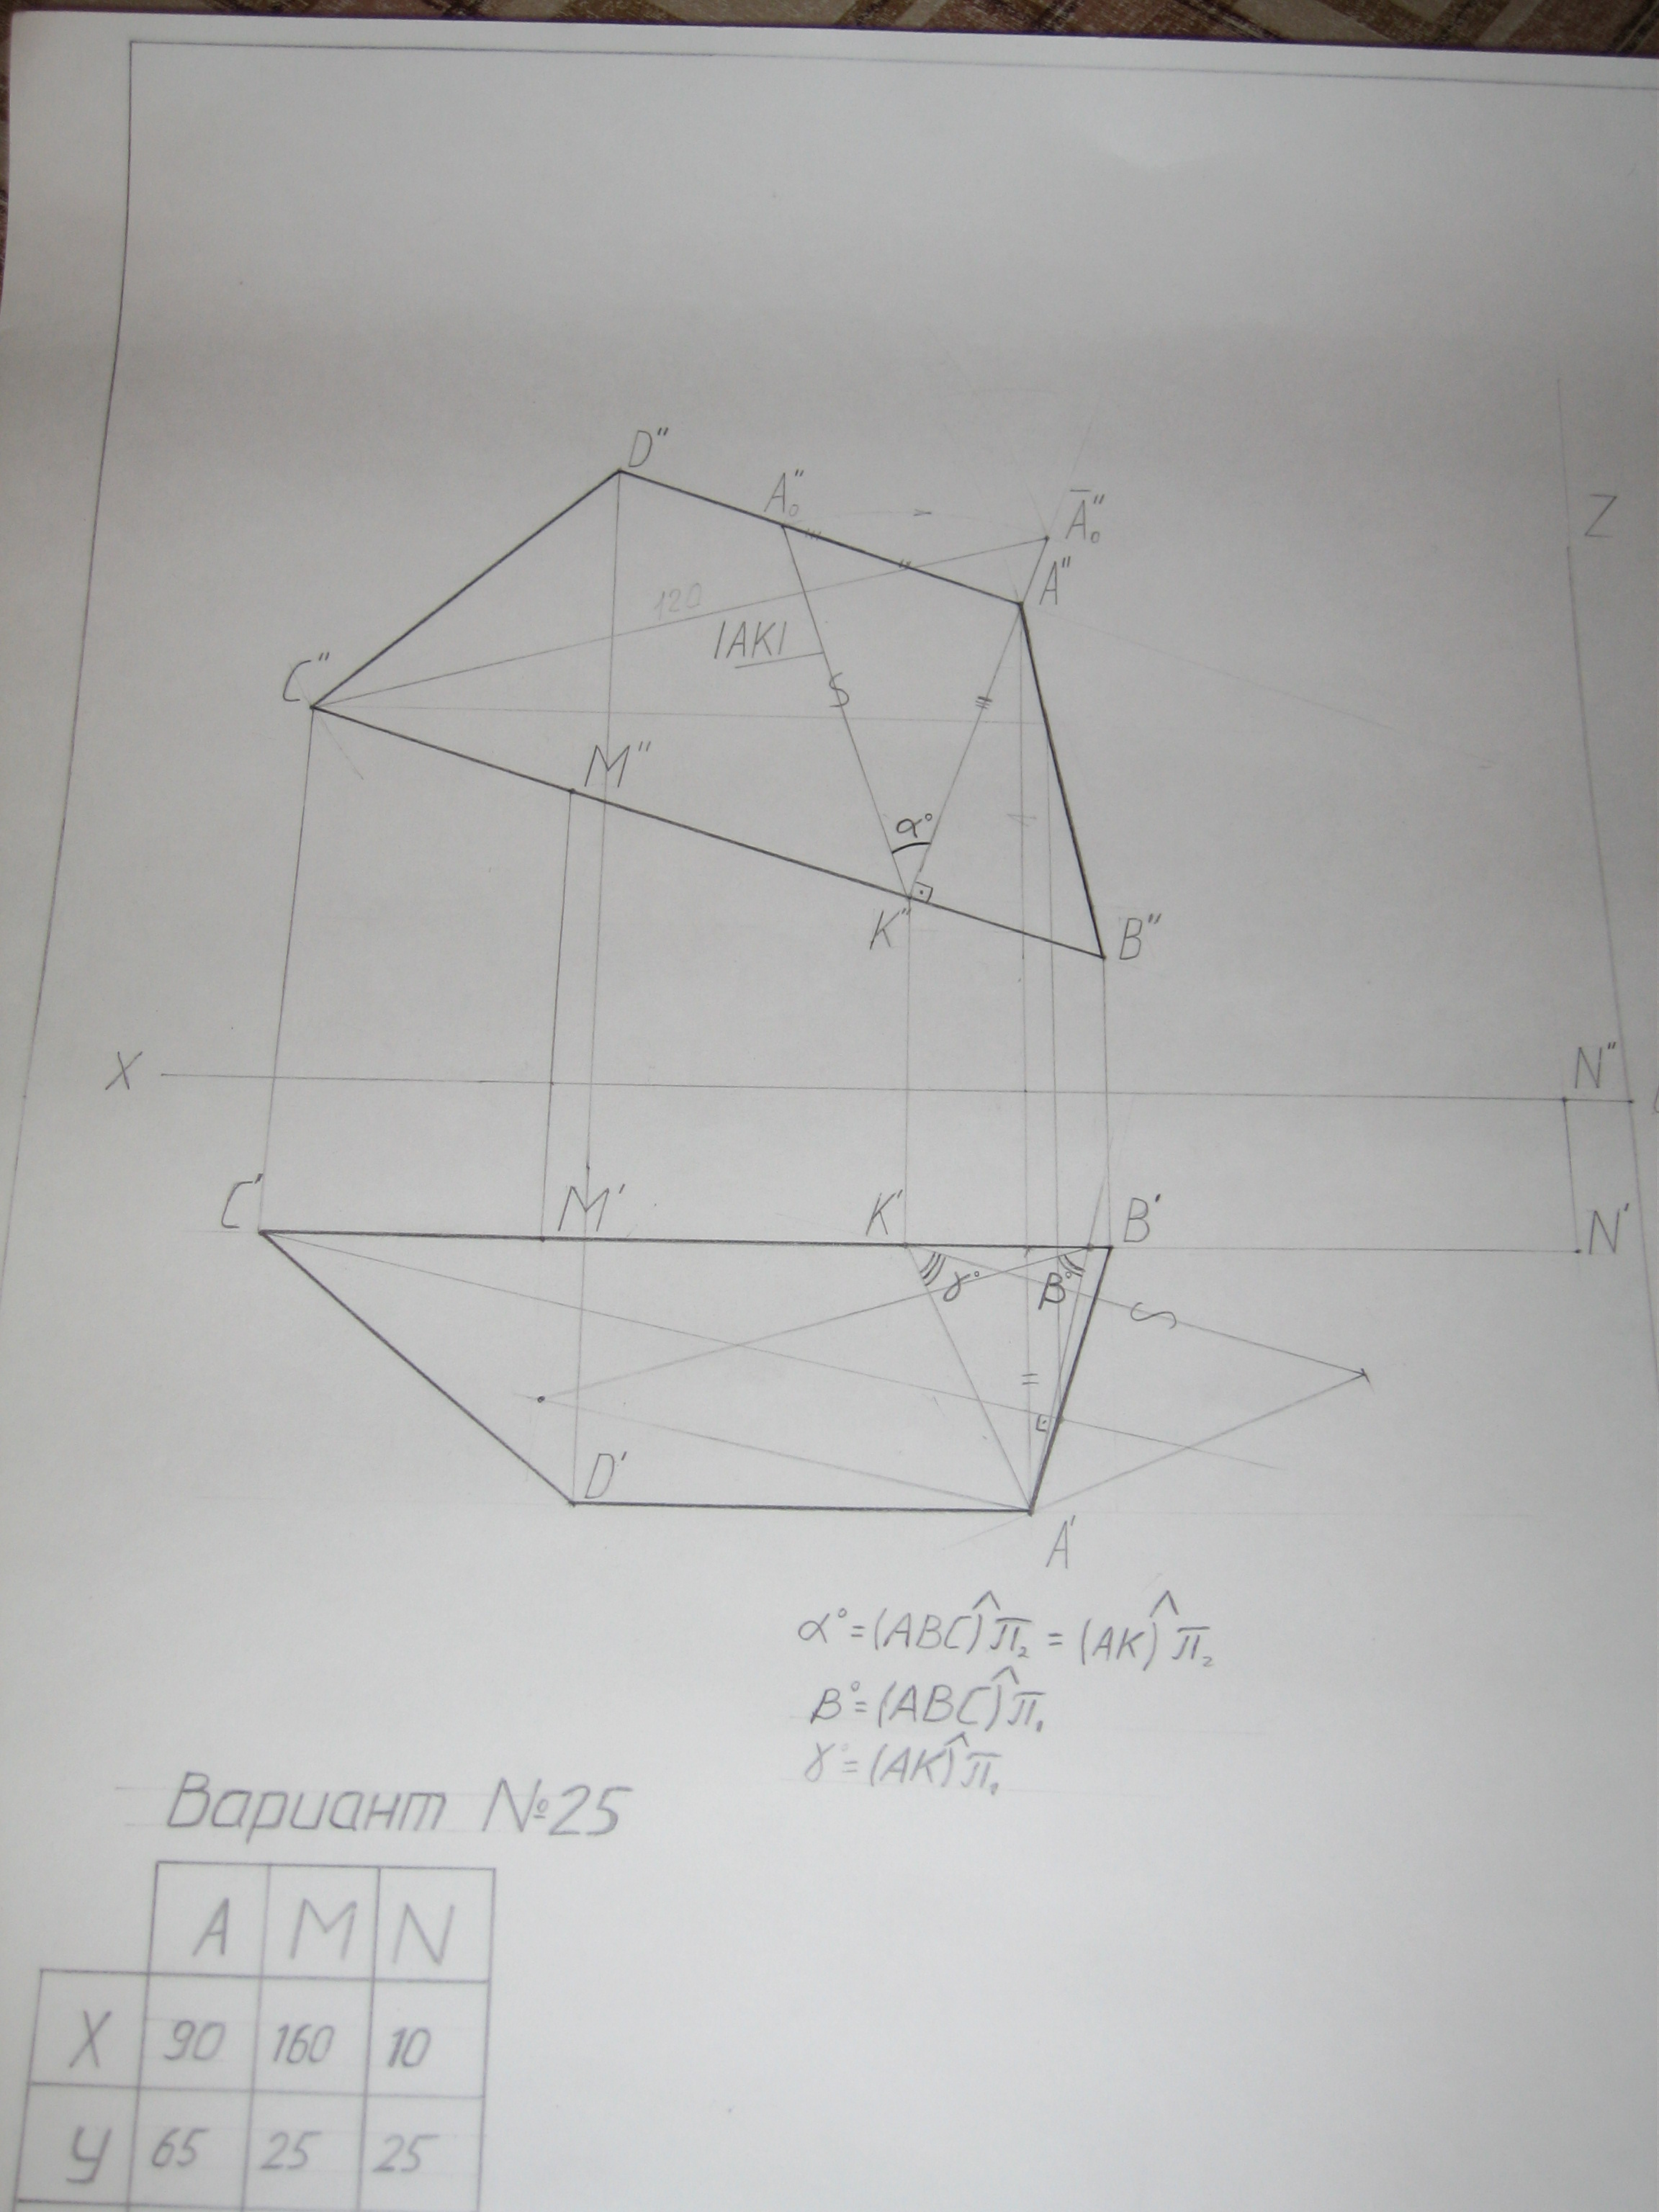 D"
A₀"
Ā₀"
Z
A"
120
|AK|
C"
S
M"
α°
K"
B"
X
N"
C'
M'
K'
B'
N'
γ°
β°
S
D'
A'
α°=(ABC)^π₂ = (AK)^π₂
β°=(ABC)^π₁
γ°=(AK)^π₁
Вариант №25
A M N
X 90 160 10
У 65 25 25